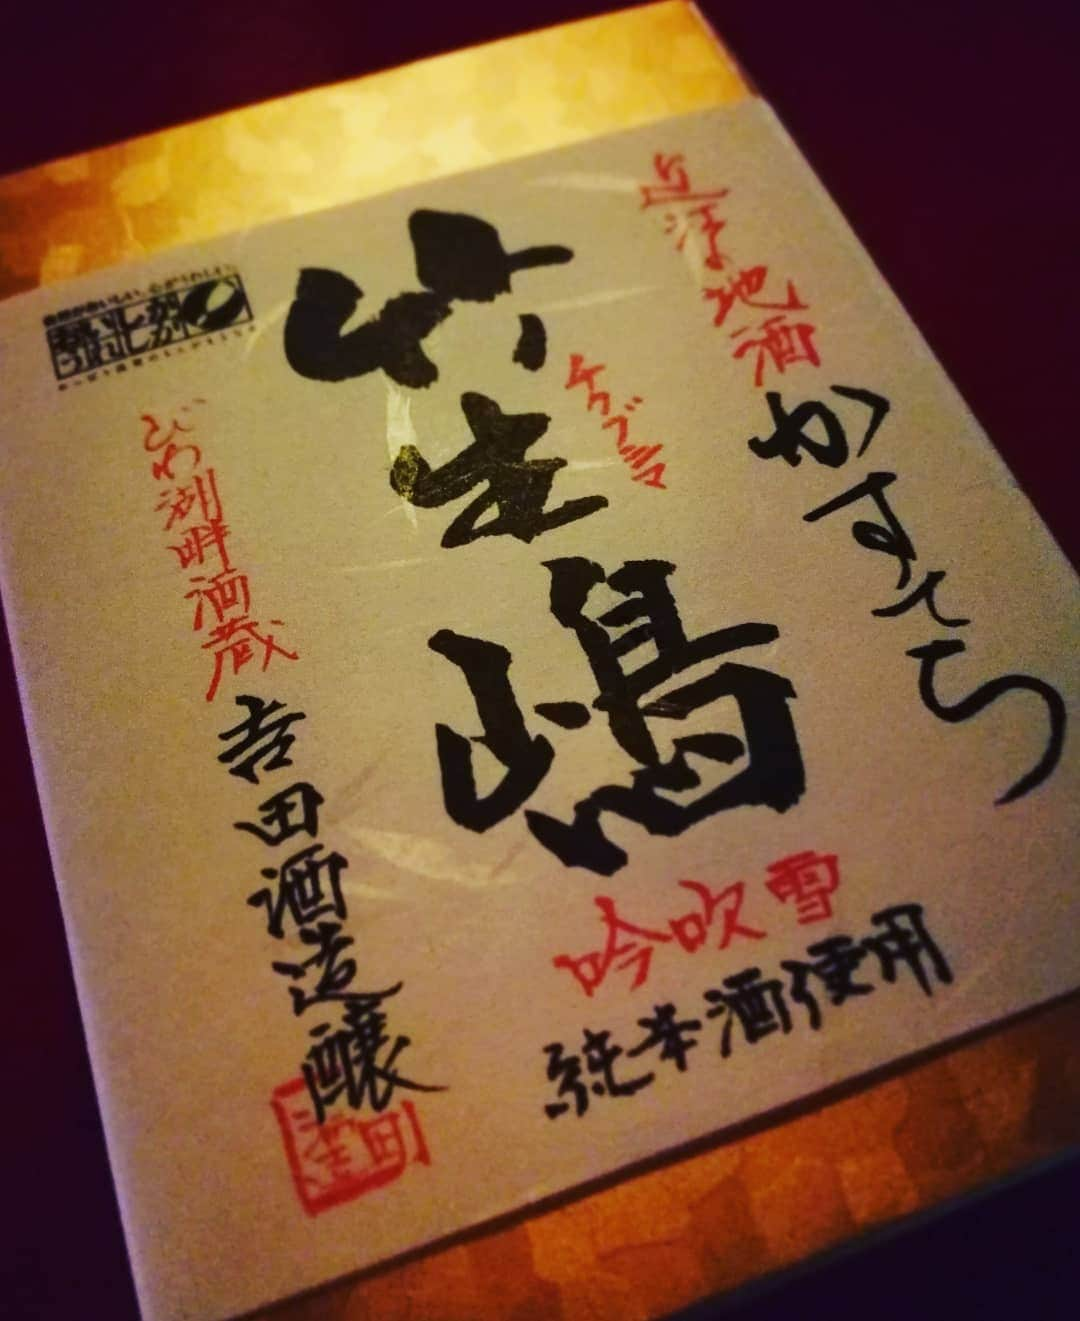 近江地酒
かすてら
竹生嶋
チクブシマ
吟吹雪
純米酒使用
びわ湖畔酒蔵
吉田酒造醸